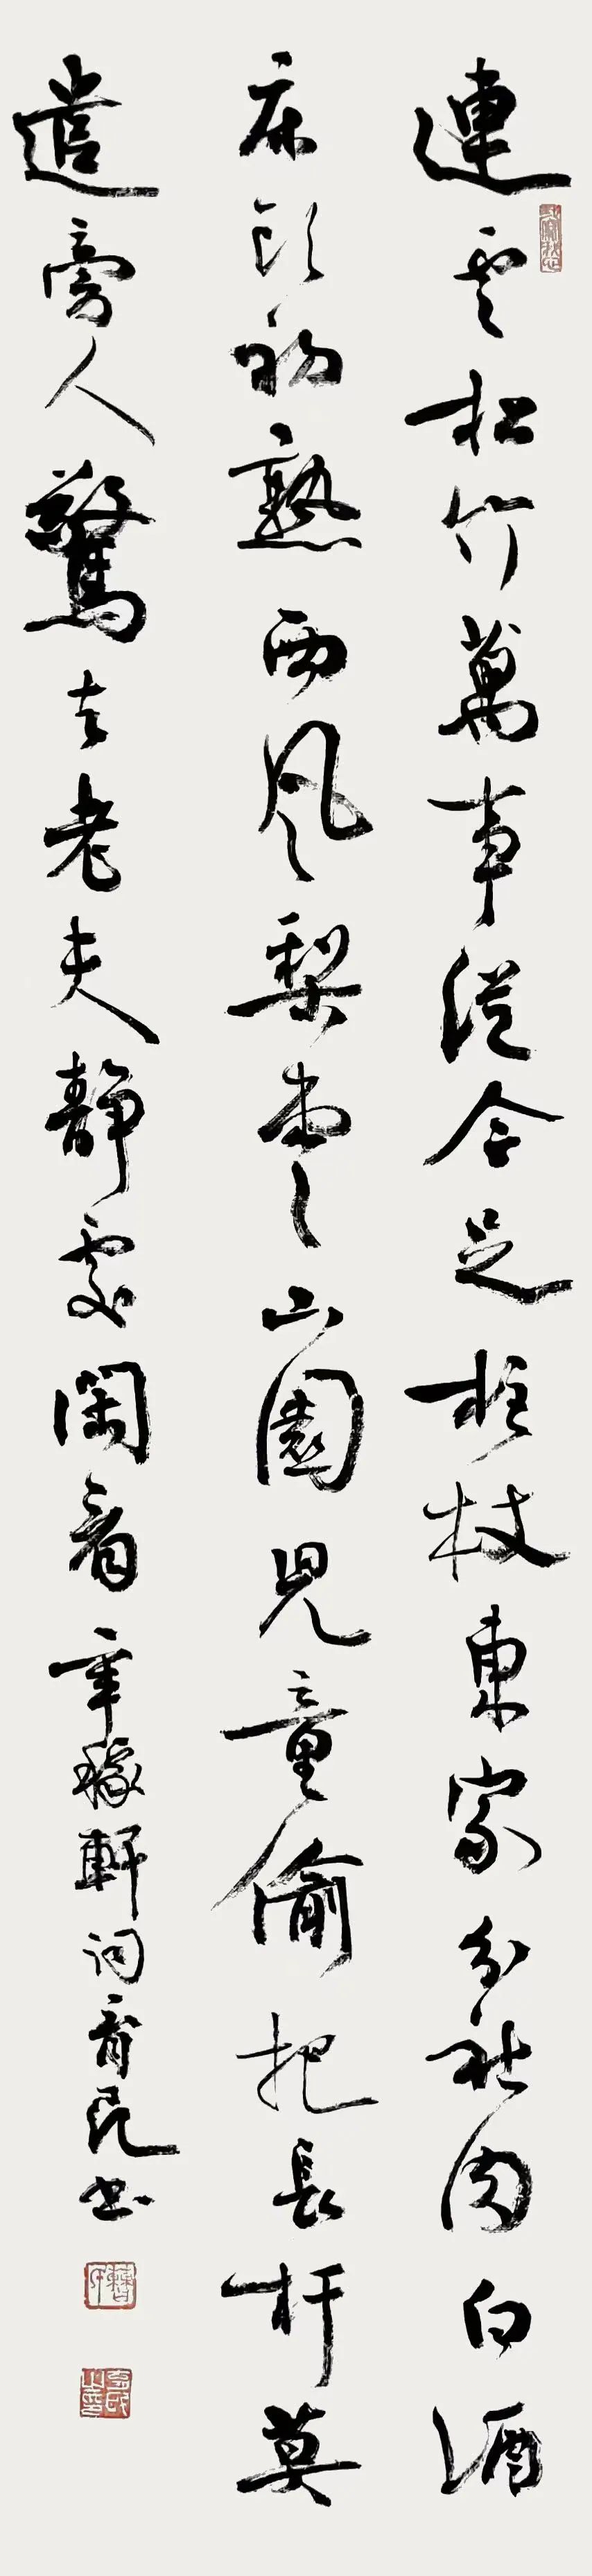 連雲松竹萬事從今足柱杖東家分社肉白酒
床頭初熟西風梨棗山園兒童偷把長杆莫
遣旁人驚去老夫靜處閑看辛稼軒詞育民書